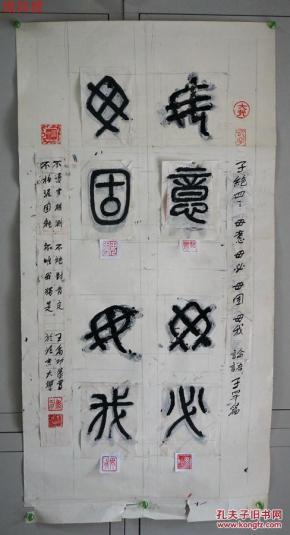 子絕四：毋意毋必毋固毋我 論語子罕篇
毋意毋必
毋固毋我
不憑空臆測 不絕對肯定
不拘泥固執 不唯我獨是
孔夫子旧书网